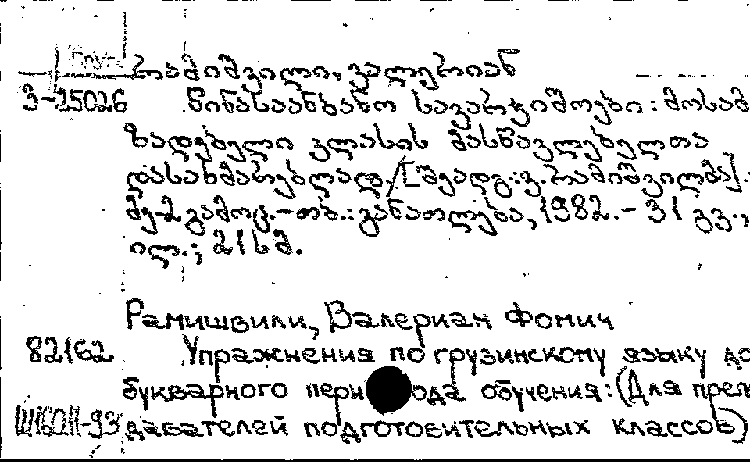 რამიშვილი, ვალერიან
3-25026 წინასაანბანო სავარჯიშოები: მოსამ
ზადებელი კლასის მასწავლებელთა
დასახმარებლად./[შეადგ.: ვ. რამიშვილმა].
მე-2 გამოც.-თბ.: განათლება, 1982.- 31 გვ.:
ილ.; 21 სმ.
Рамишвили, Валериан Фомич
82162 Упражнения по грузинскому языку до
букварного периода обучения: (Для преп
давателей подготовительных классов)